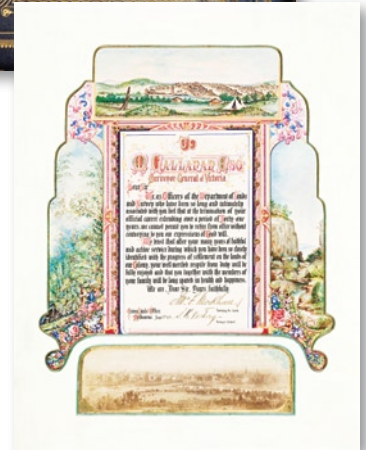 To
Surveyor General of Victoria
Dear Sir
We as Officers of the Department of Lands
and Survey who have been so long and intimately
associated with you feel that at the termination of your
official career extending over a period of Forty one
years, we cannot permit you to retire from office without
conveying to you our expressions of Good will.
We trust that after your many years of faithful
and active service during which you have been so closely
identified with the progress of settlement on the lands of
our Colony, your well merited respite from duty will be
fully enjoyed and that you together with the members of
your family will be long spared in health and happiness.
We are Dear Sir Yours faithfully
Crown Lands Office
Melbourne